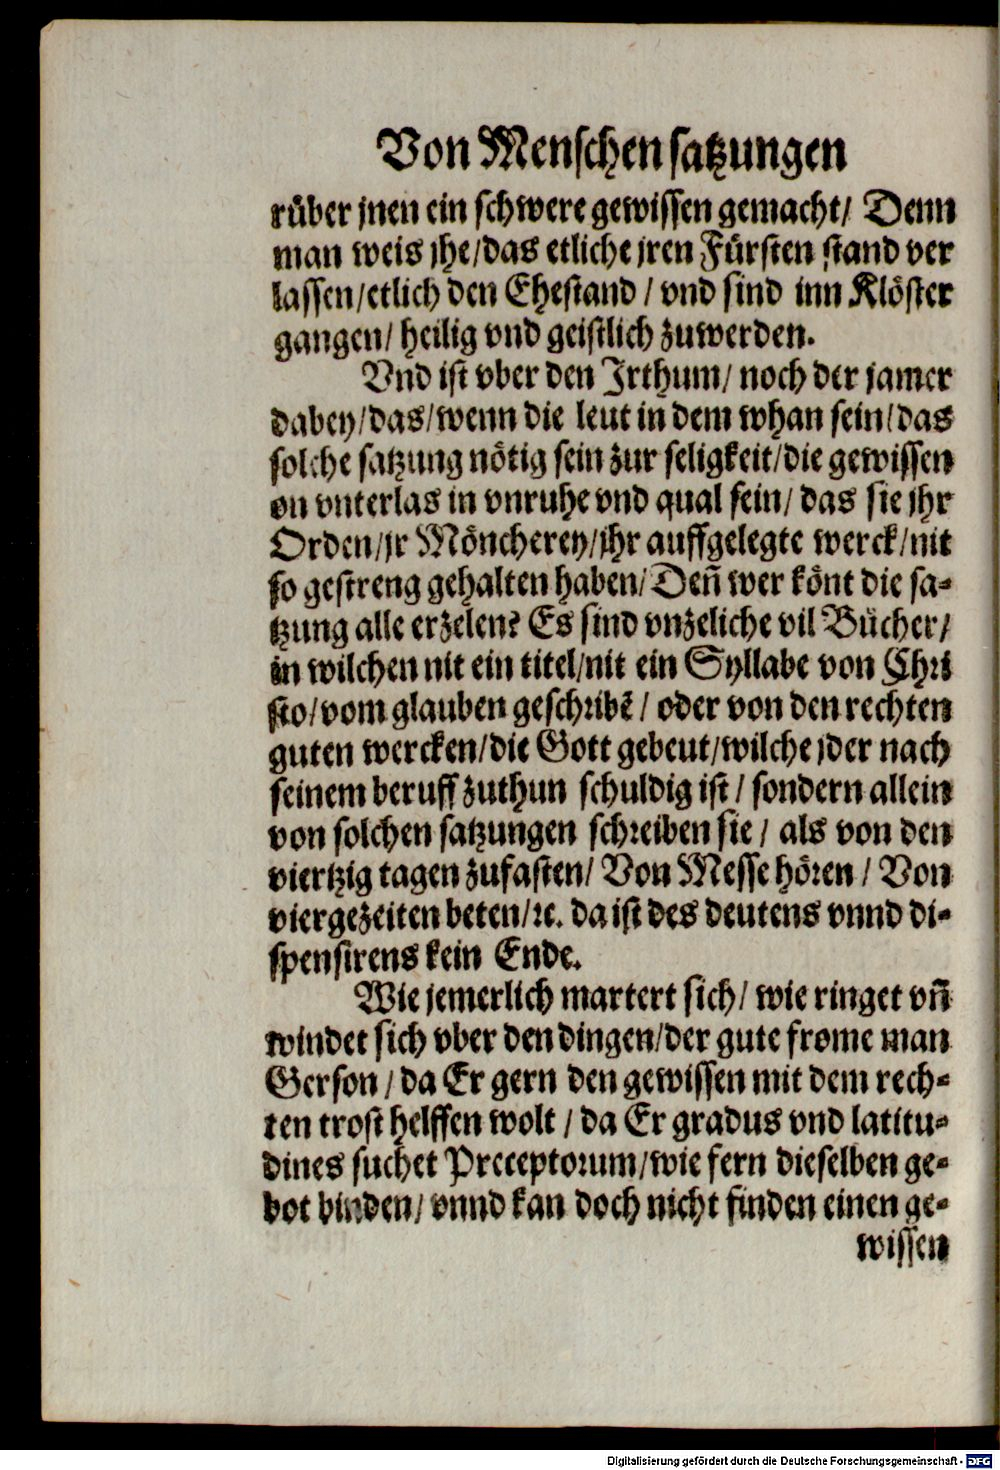 Von Menschen satzungen
rüber jnen ein schwere gewissen gemacht/ Denn
man weis jhe/das etliche jren Fürsten stand ver
lassen/etlich den Ehestand / vnd sind inn Klöster
gangen/ heilig vnd geistlich zuwerden.
Vnd ist vber den Irthum/ noch der jamer
dabey/das/wenn die leut in dem whan sein/das
solche satzung nötig sein zur seligkeit/die gewissen
on vnterlas in vnruhe vnd qual sein/ das sie jhr
Orden/jr Möncherey/jhr auffgelegte werck/nit
so gestreng gehalten haben/ Deñ wer könt die sa-
tzung alle erzelen? Es sind vnzeliche vil Bücher/
in wilchen nit ein titel/nit ein Syllabe von Chri
sto/vom glauben geschribē / oder von den rechten
guten wercken/die Gott gebeut/wilche jder nach
seinem beruff zuthun schuldig ist / sondern allein
von solchen satzungen schreiben sie / als von den
viertzig tagen zufasten/ Von Messe hören / Von
viergezeiten beten/ꝛc. da ist des deutens vnnd di-
spensirens kein Ende.
Wie jemerlich martert sich/ wie ringet vñ
windet sich vber den dingen/der gute frome man
Gerson / da Er gern den gewissen mit dem rech-
ten trost helffen wolt / da Er gradus vnd latitu-
dines suchet Preceptorum/wie fern dieselben ge-
bot binden/ vnnd kan doch nicht finden einen ge-
wissen
Digitalisierung gefördert durch die Deutsche Forschungsgemeinschaft - DFG